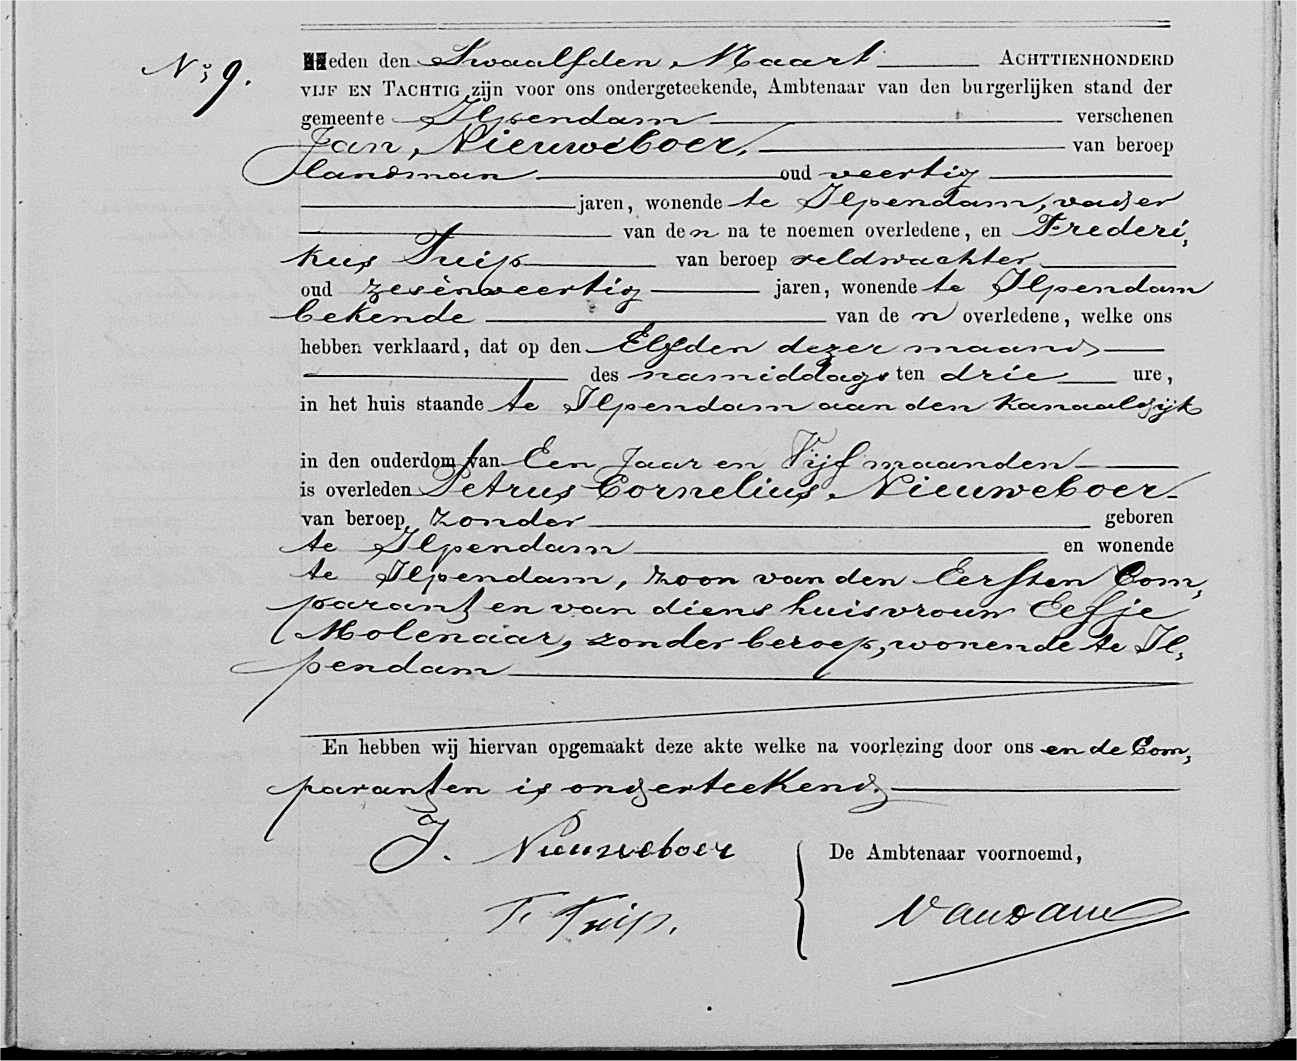 No 9.
Heden den Twaalfden Maart ACHTTIENHONDERD
VIJF EN TACHTIG zijn voor ons ondergeteekende, Ambtenaar van den burgerlijken stand der
gemeente Ilpendam verschenen
Jan Nieuweboer, van beroep
Landman oud veertig
jaren, wonende te Ilpendam, vader
van den na te noemen overledene, en Frederi,
kus Tuip van beroep veldwachter
oud zesenveertig jaren, wonende te Ilpendam
bekende van den overledene, welke ons
hebben verklaard, dat op den Elfden dezer maand
des namiddags ten drie ure,
in het huis staande te Ilpendam aan den Kanaaldijk
in den ouderdom van Een Jaar en Vijf maanden
is overleden Petrus Cornelius Nieuweboer
van beroep zonder geboren
te Ilpendam en wonende
te Ilpendam, zoon van den Eersten Com,
parant en van diens huisvrouw Eefje
Molenaar, zonder beroep, wonende te Il,
pendam
En hebben wij hiervan opgemaakt deze akte welke na voorlezing door ons en de Com,
paranten is onderteekend,
J. Nieuweboer
De Ambtenaar voornoemd,
F. Tuip.
Van Dam